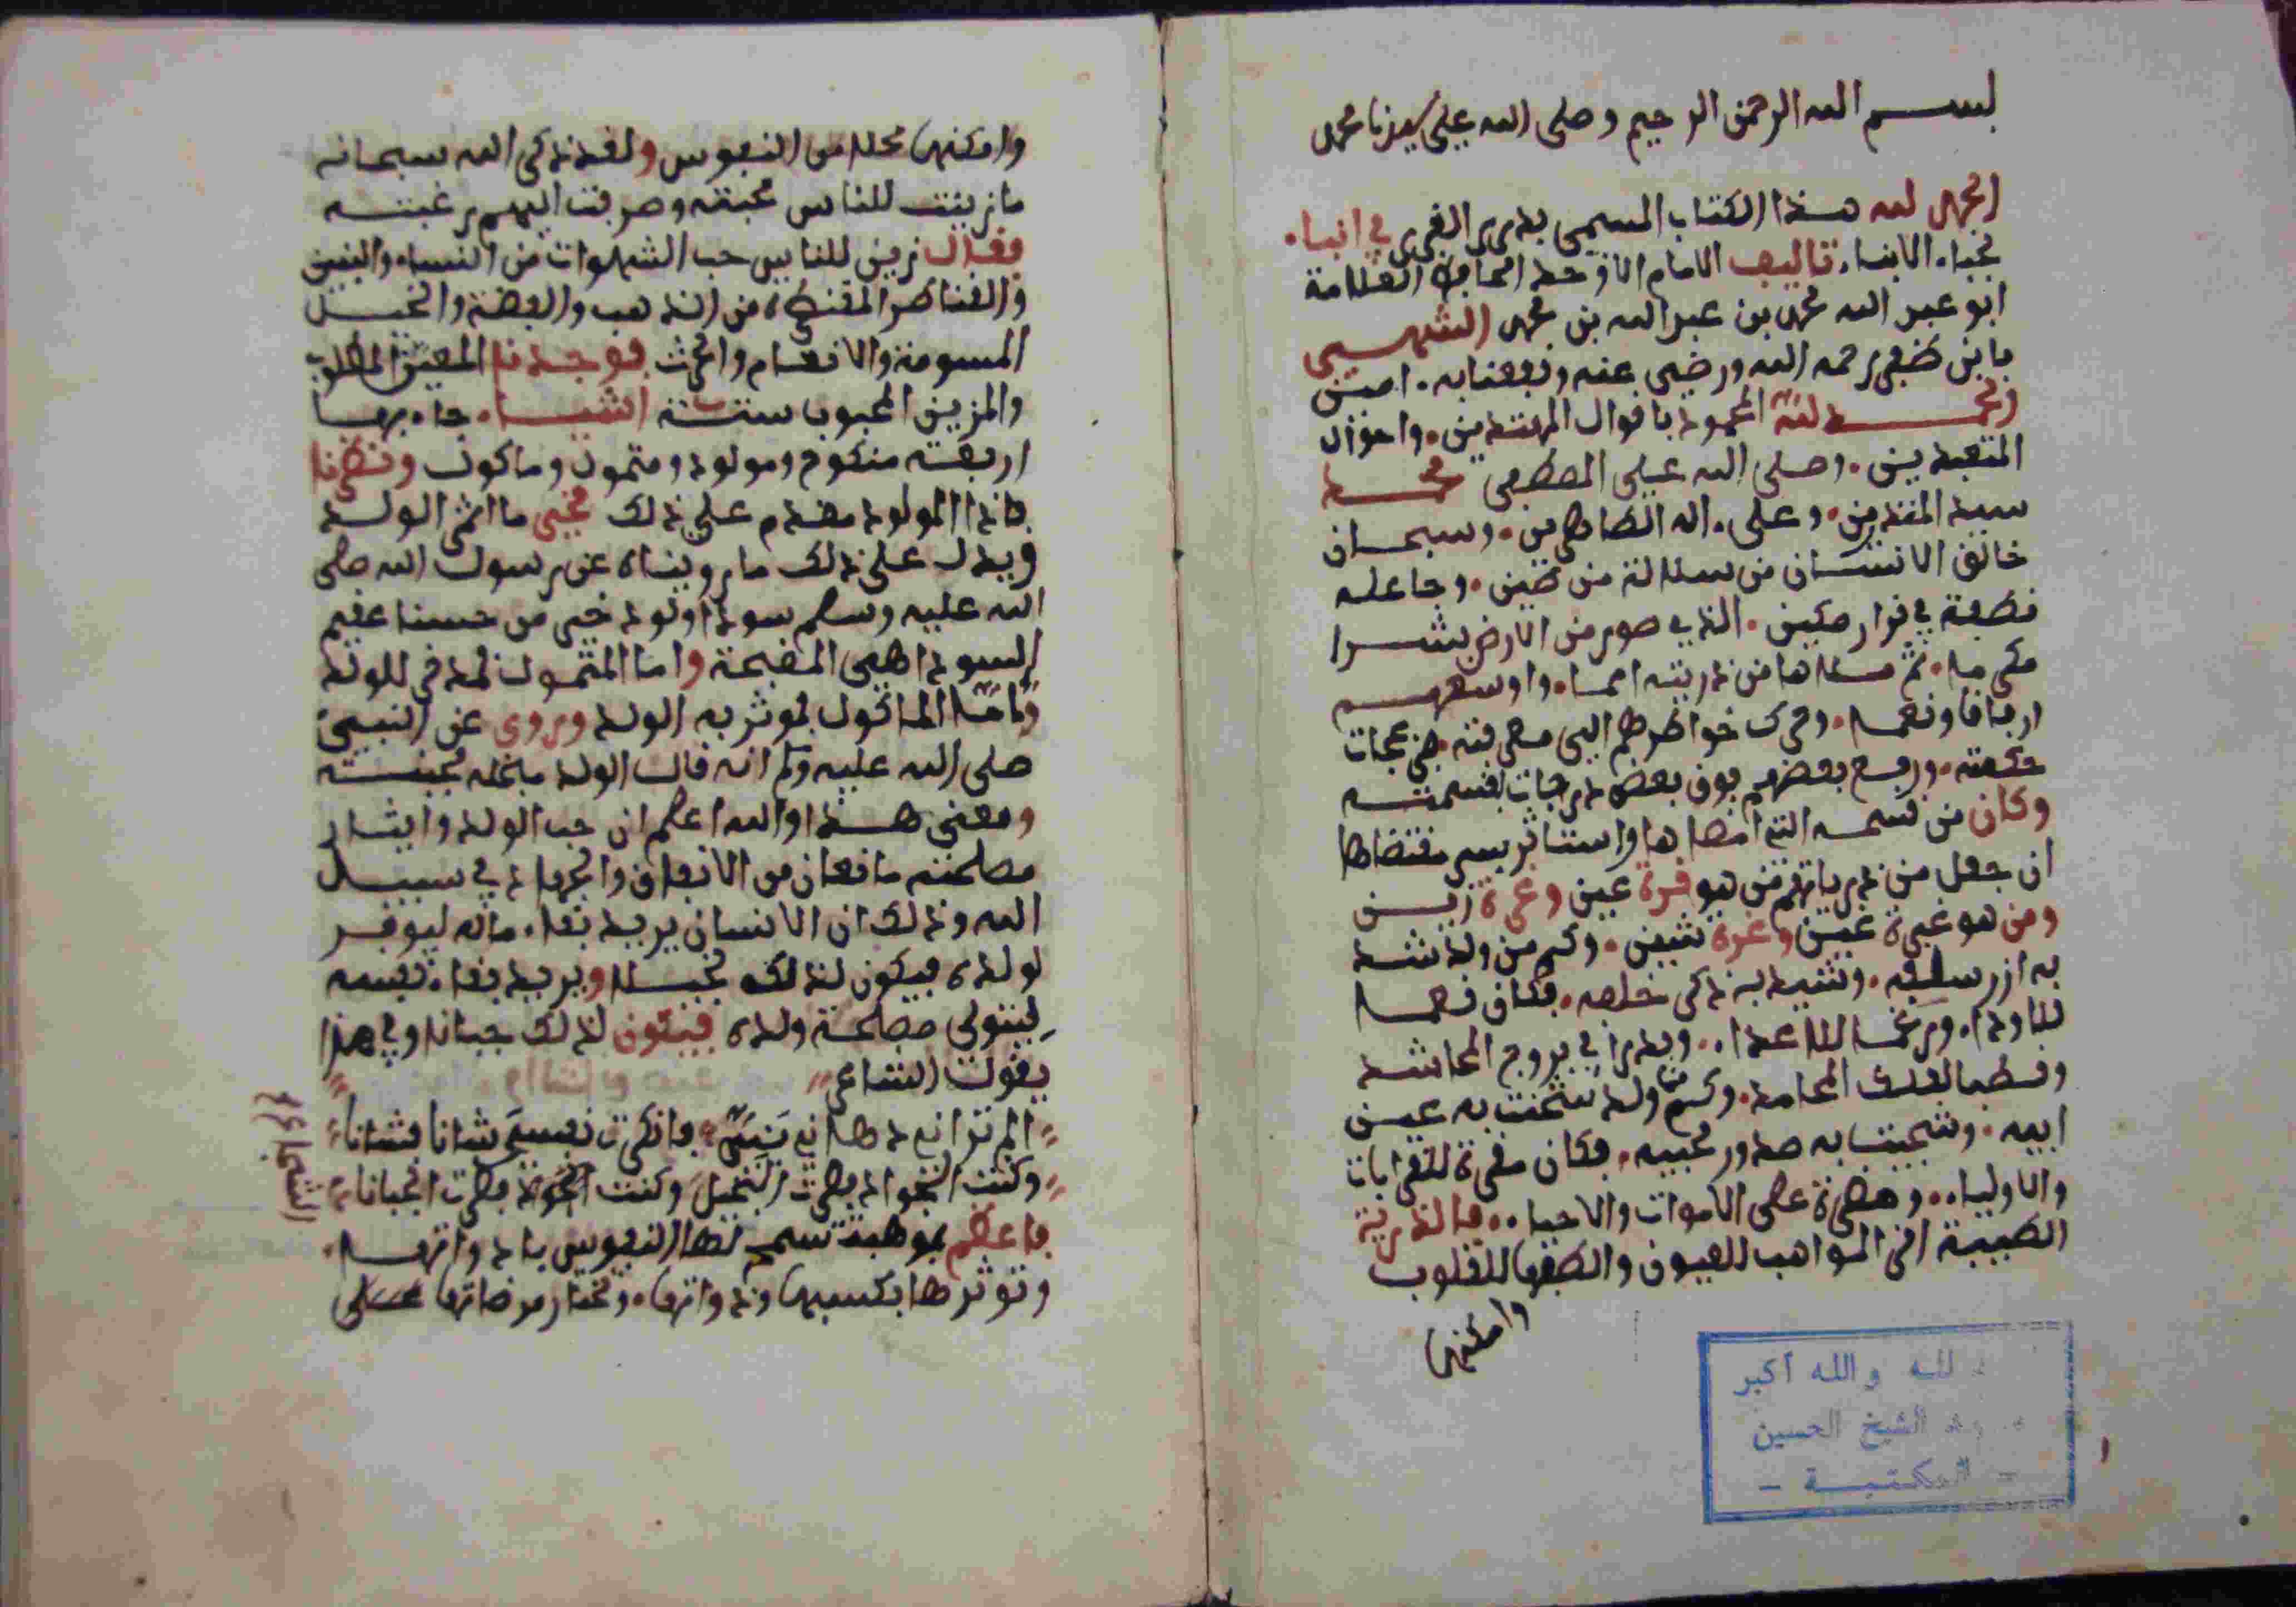 بسم الله الرحمن الرحيم وصلى الله على سيدنا محمد
الحمد لله هذا الكتاب المسمى بدرر الغرر في انباء
نجباء الابناء تاليف الامام الاوحد الحافظ العلامة
ابو عبد الله محمد بن عبد الله بن محمد الشهير
بابن ظفر رحمه الله ورضي عنه ونفعنا به امين
الحمد لله المحمود باقوال المهتدين واحوال
المتعبدين وصلى الله على المصطفى محمد
سيد المنذرين وعلى اله الطاهرين وسبحان
خالق الانسان من سلالة من طين وجاعله
نطفة في قرار مكين الذي صور من الارض بشرا
مكرما ثم ملاها من ذريته امما واوسعهم
ارفاقا ونعما وحرك خواطرهم الى معرفته
حكمته ورفع بعضهم فوق بعض درجات بقسمته
وكان من قسمه التي امضاها واستاثر بسر مقتضاها
ان جعل من ذرياتهم من هو قرة عين وغرة زين
ومن هو عبرة عين وعرة شين وكم من ولد شد
به ازر سلفه وشيد به ذكر خلفه فكان
للاودا ورغما للاعدا وبدرا في بروج المحاشد
وقطبا لفلك المحامد وكم من ولد سخنت به عين
ابيه وشجيت به صدور محبيه فكان معرة للقرابات
والاولياء ومضرة على الاموات والاحياء فالذرية
الطيبة اقر المواهب للعيون والطفها للقلوب
وامكنها
لله والله أكبر
الشيخ الحسين
- المكتبة -
وامكنها محلا من النفوس ولقد ذكر الله سبحانه
ما زينت للناس محبته وصرفت اليهم رغبته
فقال زين للناس حب الشهوات من النساء والبنين
والقناطير المقنطرة من الذهب والفضة والخيل
المسومة والانعام والحرث فوجدنا المعين المطلوب
والمزين المحبوب ستة اشياء جاء بها
اربعة منكوح ومولود ومتمول وماكول ونظرنا
فاذا المولود مقدم على ذلك
ويدل على ذلك ما رويناه عن رسول الله صلى
الله عليه وسلم سوداء ولود خير من حسناء عقيم
السوداء هي القبيحة واما المتمول للولد
واما الماكول فموثر به الولد وروي عن النبي
صلى الله عليه وسلم انه قال الولد مبخلة مجبنة
ومعنى هذا والله اعلم ان حب الولد وايثار
مصلحته مانعان من الانفاق والجهاد في سبيل
الله وذلك ان الانسان يريد بقاء ماله ليوفر
لولده فيكون لذلك بخيلا ويريد بقاء نفسه
ليتولى مصلحة ولده فيكون لذلك جبانا وفي هذا
يقول الشاعر
الم تر اني فانكرت نفسي شانا فشانا
وكنت الجواد فصرت البخيل وكنت الشجاع فصرت الجبانا
الشجاع
فاعظم بموهبة تسمح لها النفوس
وتوثرها بكسبها وتختار مرضاتها على